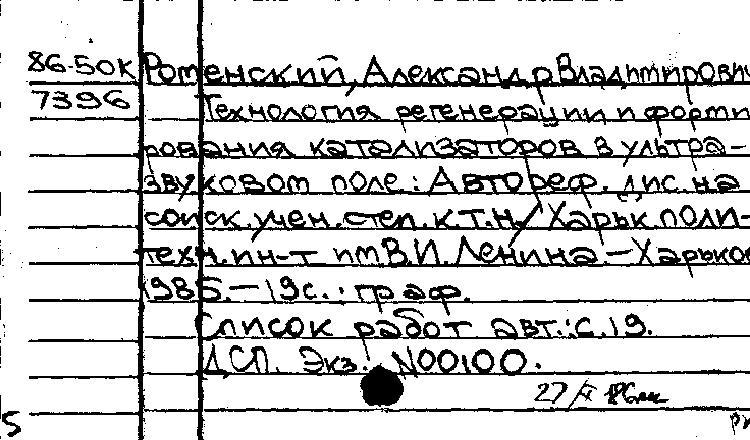 86-50К Ротенский, Александр Владимирович
7396 Технология регенерации и форми
рования катализаторов в ультра-
звуковом поле: Автореф. дис. на
соиск. учен. степ. к.т.н/ Харьк. поли-
техн. ин-т им В.И. Ленина.-Харьков
1985.-19с.: граф.
Список работ авт.: с.19.
ДСП. Экз. N00100.
27/X 86
5